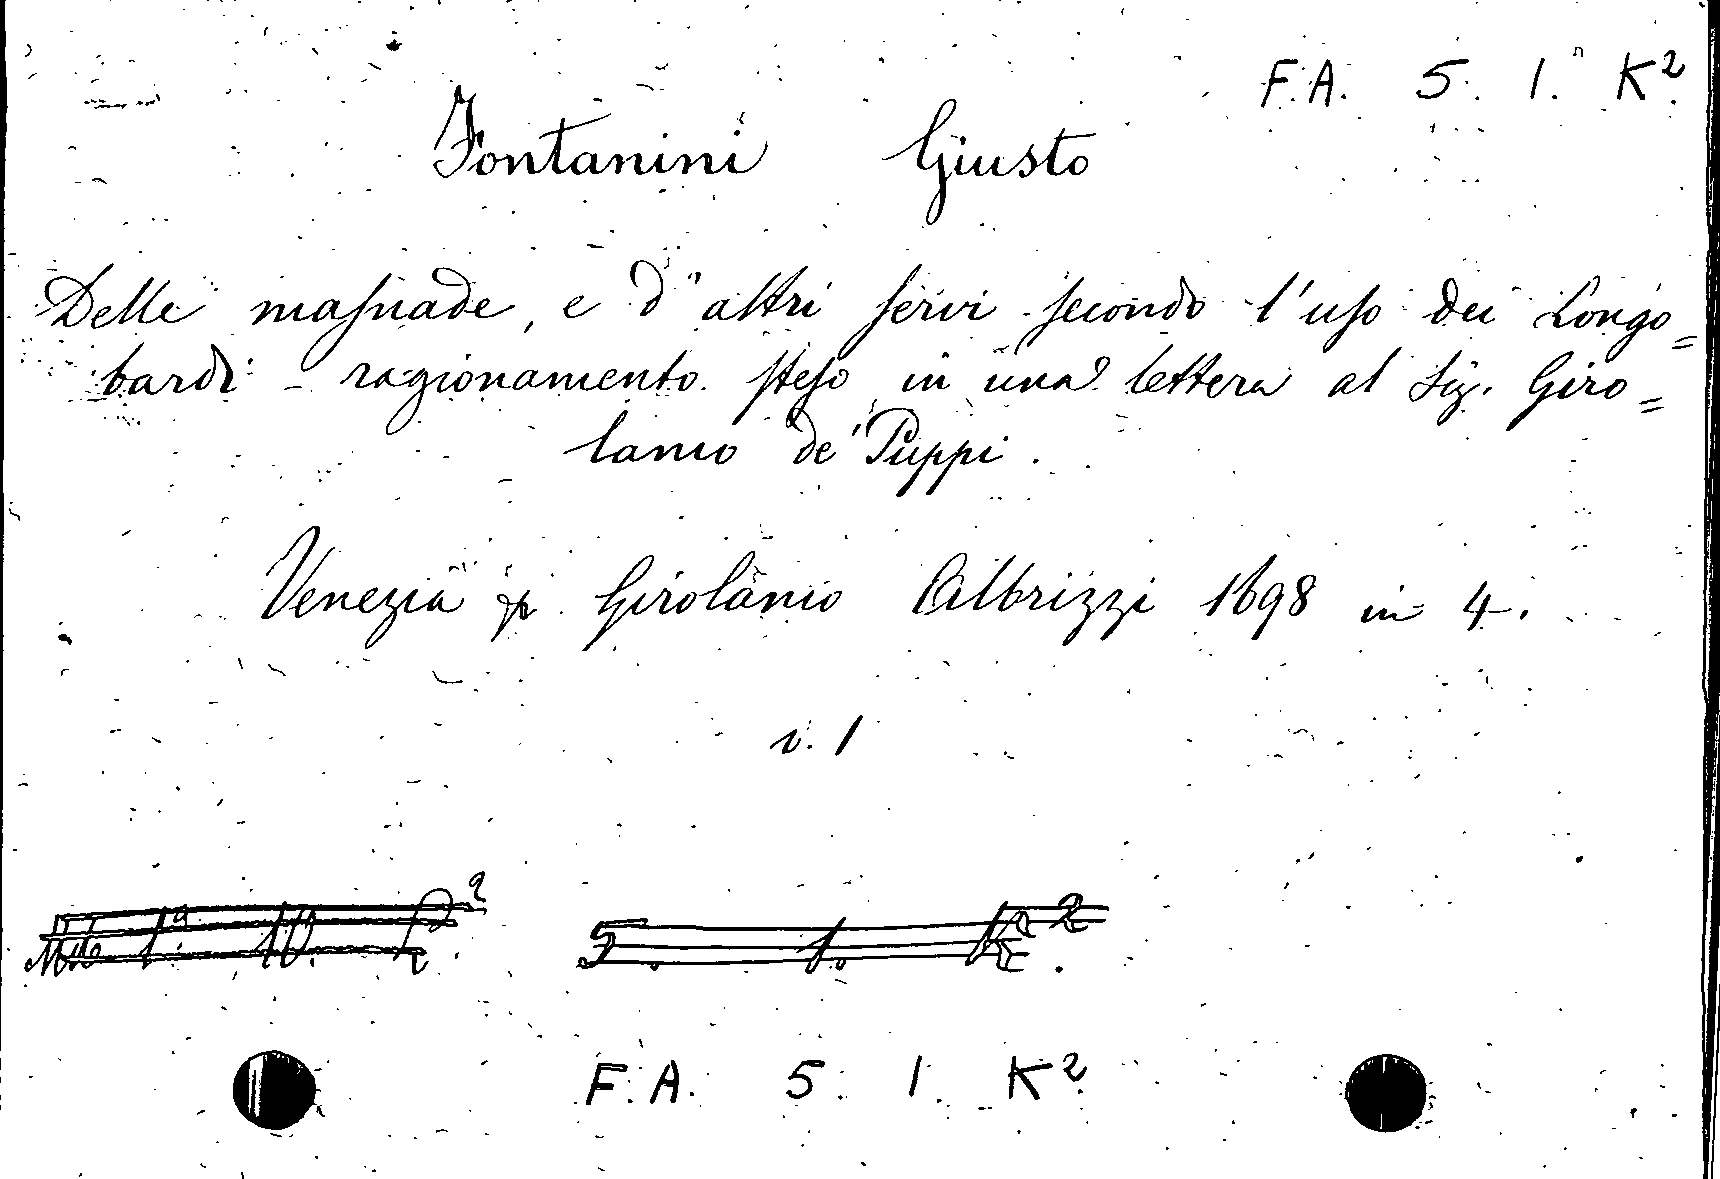 F.A. 5. 1. K².
Fontanini Giusto
Delle maſnade, e d'altri ſervi ſecondo l'uſo dei Longo=
bardi - ragionamento ſteſo in una lettera al Sig. Giro=
lamo de' Puppi.
Venezia Girolamo Albrizzi 1698 in 4.
v. 1
5. 1. K².
F.A. 5. 1. K².